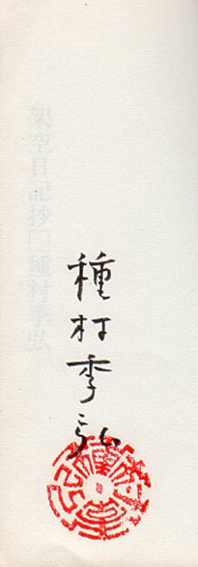 種村季弘
架空日記抄□種村季弘